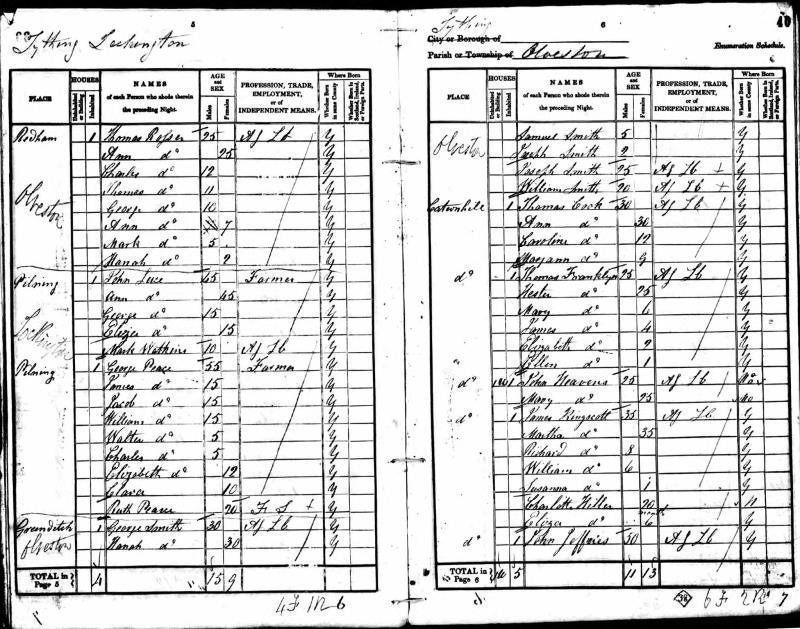 5
Tything Lockington
PLACE
HOUSES
Uninhabited or Building
Inhabited
NAMES
of each Person who abode therein the preceding Night.
AGE and SEX
Males
Females
PROFESSION, TRADE, EMPLOYMENT, or of INDEPENDENT MEANS.
Where Born
Whether Born in same County
Whether Born in Scotland, Ireland, or Foreign Parts.
Redham 1 Thomas Rosser 25 Ag Lb Y
Ann do 25 Y
Charles do 12 Y
Thomas do 11 Y
Olveston
George do 10 Y
Ann do 7 Y
Mark do 5 Y
Hanah do 2 Y
Pilning 1 John Luce 45 Farmer Y
Ann do 45 Y
George do 15 Y
Lockington
Eliza do 15 Y
Mark Watkins 10 Ag Lb Y
Pilning 1 George Peace 55 Farmer Y
James do 15 Y
Jacob do 15 Y
William do 15 Y
Walter do 5 Y
Charles do 5 Y
Elizabeth do 12 Y
Clara 10 Y
Ruth Peace 20 F S + Y
Greenditch 1 George Smith 30 Ag Lb Y
Olveston
Hanah do 30 Y
TOTAL in Page 5 4 15 9
4F 1R 6
6
40
Tything
City or Borough of
Parish or Township of Olveston
Enumeration Schedule.
PLACE
HOUSES
Uninhabited or Building
Inhabited
NAMES
of each Person who abode therein the preceding Night.
AGE and SEX
Males
Females
PROFESSION, TRADE, EMPLOYMENT, or of INDEPENDENT MEANS.
Where Born
Whether Born in same County
Whether Born in Scotland, Ireland, or Foreign Parts.
Olveston
Samuel Smith 5 Y
Joseph Smith 2 Y
Joseph Smith 25 Ag Lb + Y
William Smith 20 Ag Lb + Y
1 Thomas Cook 30 Ag Lb Y
Ann do 30 Y
Caroline do 12 Y
Maryann do 9 Y
do 1 Thomas Franklyn 25 Ag Lb Y
Hester do 25 Y
Mary do 6 Y
James do 4 Y
Elizabeth do 2 Y
Ellen do 1 Y
do 1 John Heavens 25 Ag Lb
Mary do 25 No
do 1 James Kingscott 35 Ag Lb Y
Martha do 35 Y
Richard do 8 Y
William do 6 Y
Susanna do 1 Y
Charlotte Hiller 20 N
Eliza do 6 month Y
do 1 John Jeffries 50 Ag Lb Y
TOTAL in Page 6 5 11 13
6F 2R 7